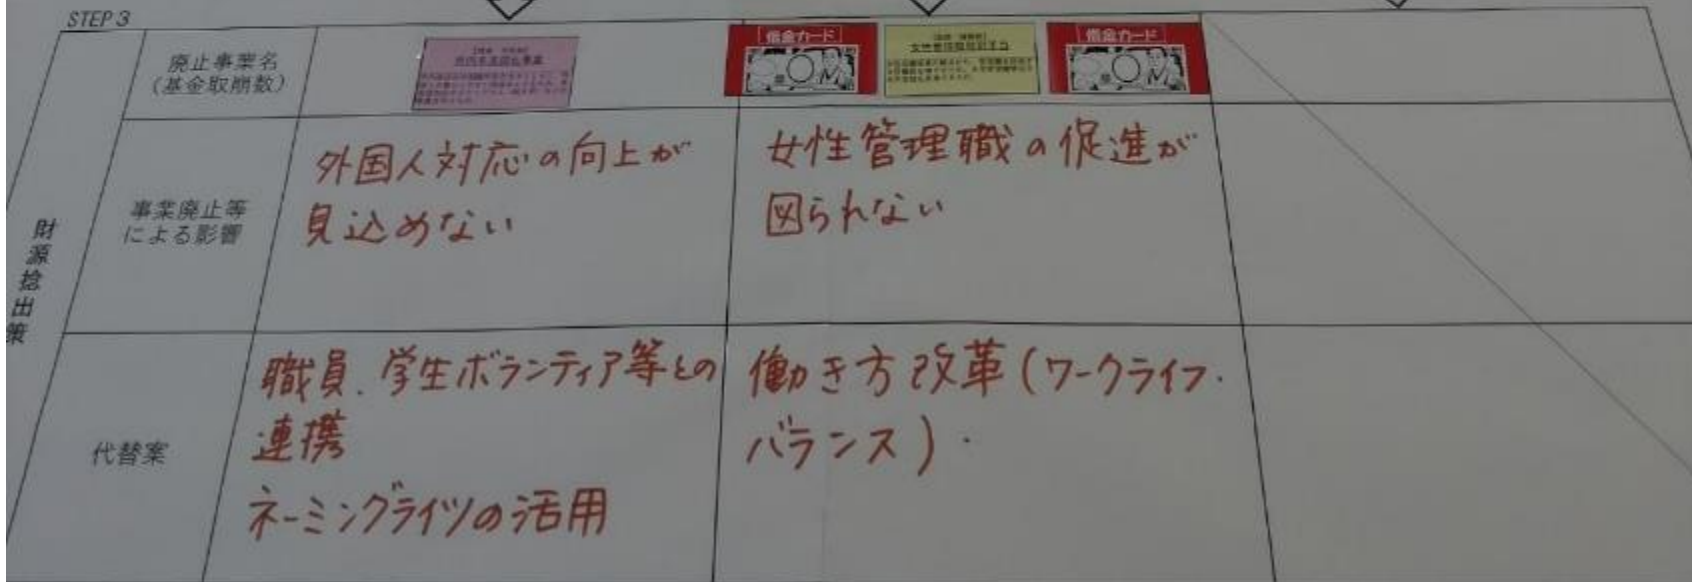 STEP 3
廃止事業名
(基金取崩数)
借金カード
借金カード
財源捻出策
事業廃止等
による影響
外国人対応の向上が
見込めない
女性管理職の促進が
図られない
代替案
職員、学生ボランティア等との
連携
ネーミングライツの活用
働き方改革(ワークライフ・
バランス)